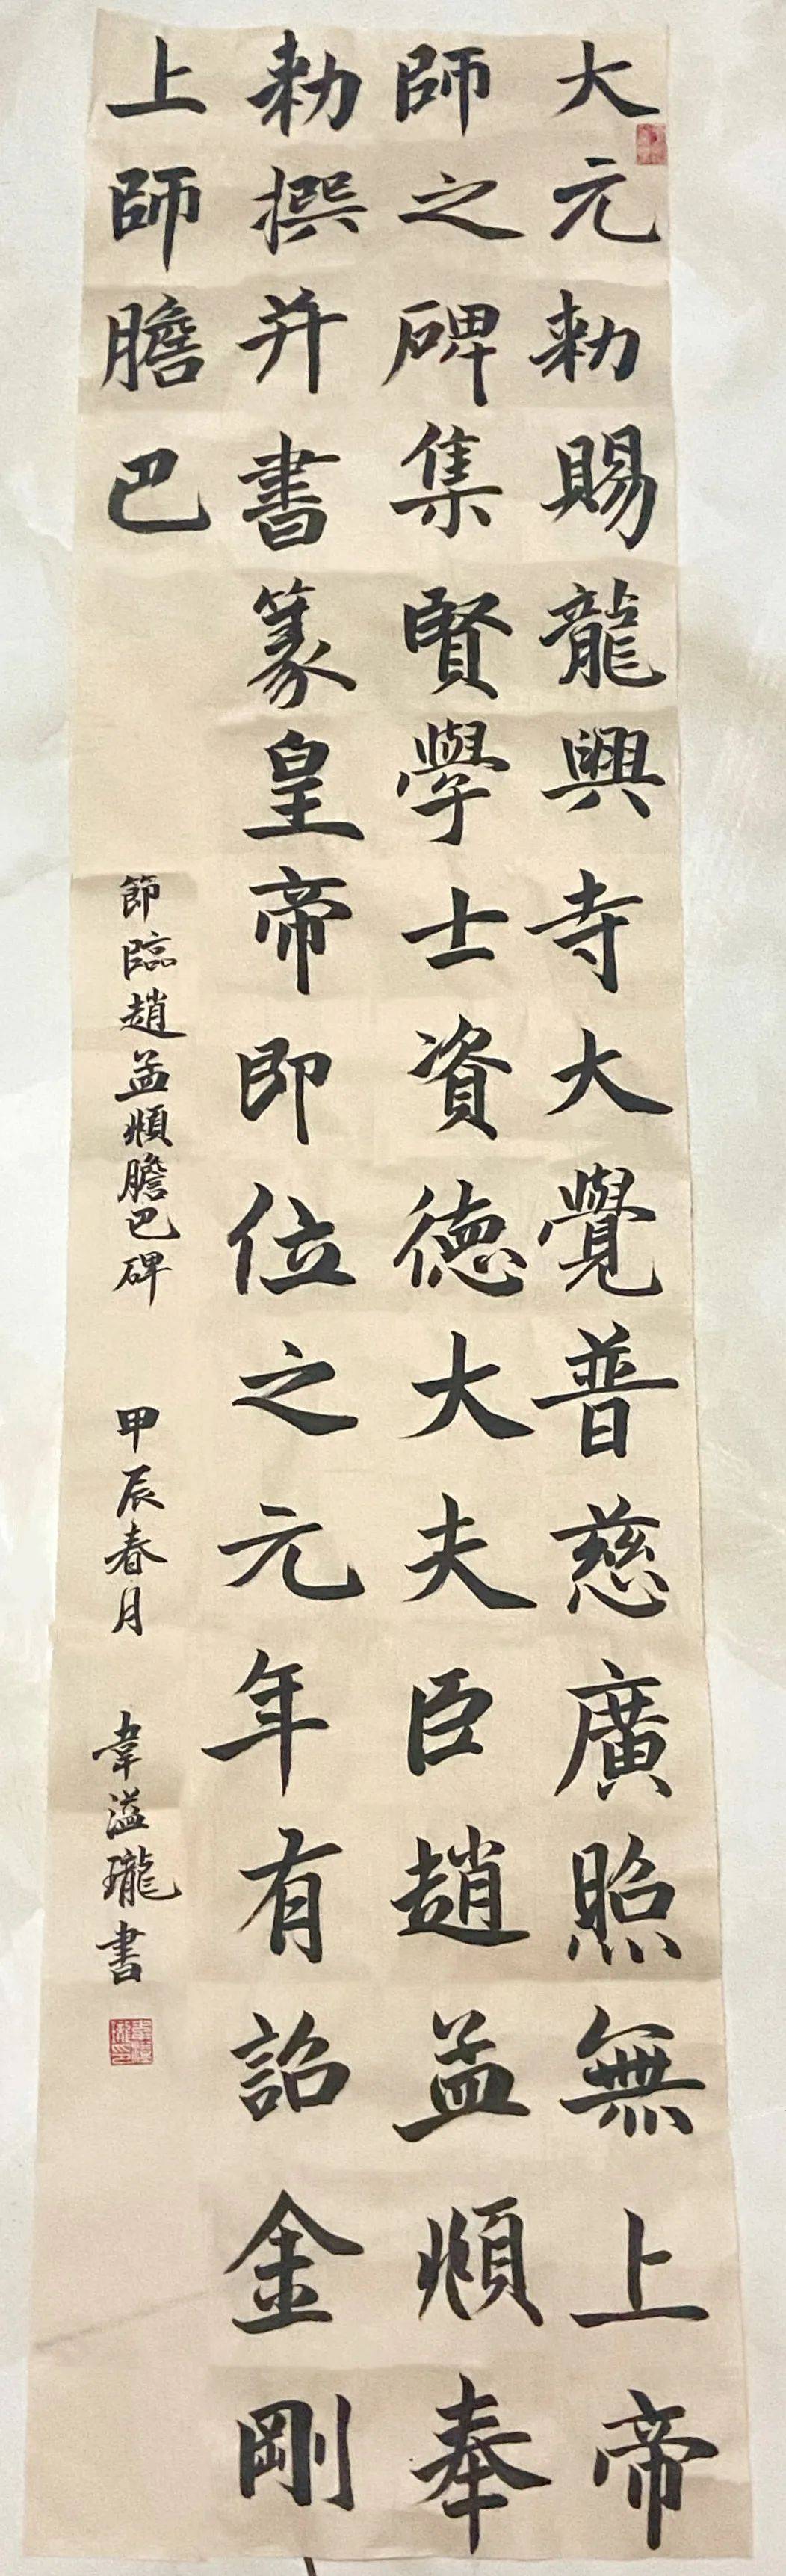 大元勑賜龍興寺大覺普慈廣照無上帝
師之碑集賢學士資德大夫臣趙孟頫奉
勑撰并書篆皇帝即位之元年有詔金剛
上師膽巴
節臨趙孟頫膽巴碑 甲辰春月 韋溢瓏書